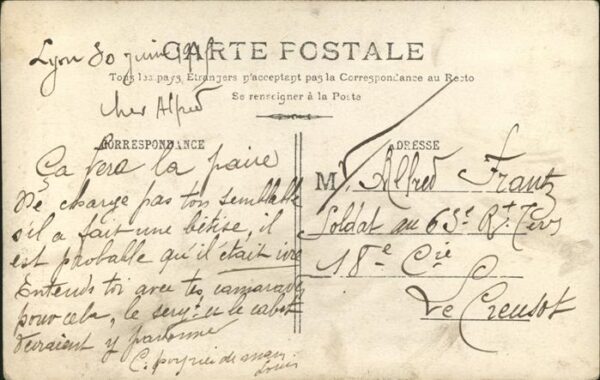 Lyon 30 juin
CARTE POSTALE
Tous les pays Étrangers n'acceptent pas la Correspondance au Recto
Se renseigner à la Poste
cher Alfred
CORRESPONDANCE
ADRESSE
Ça fera la paire
Ne charge pas ton semblable
s'il a fait une bêtise, il
est probable qu'il était ivre
Entends toi avec tes camarades
pour cela, le serg.t et le cabot
devraient y pardonner
de main
Louis
M. Alfred Frantz
Soldat au 63e Rt.
18e Cie
Le Creusot